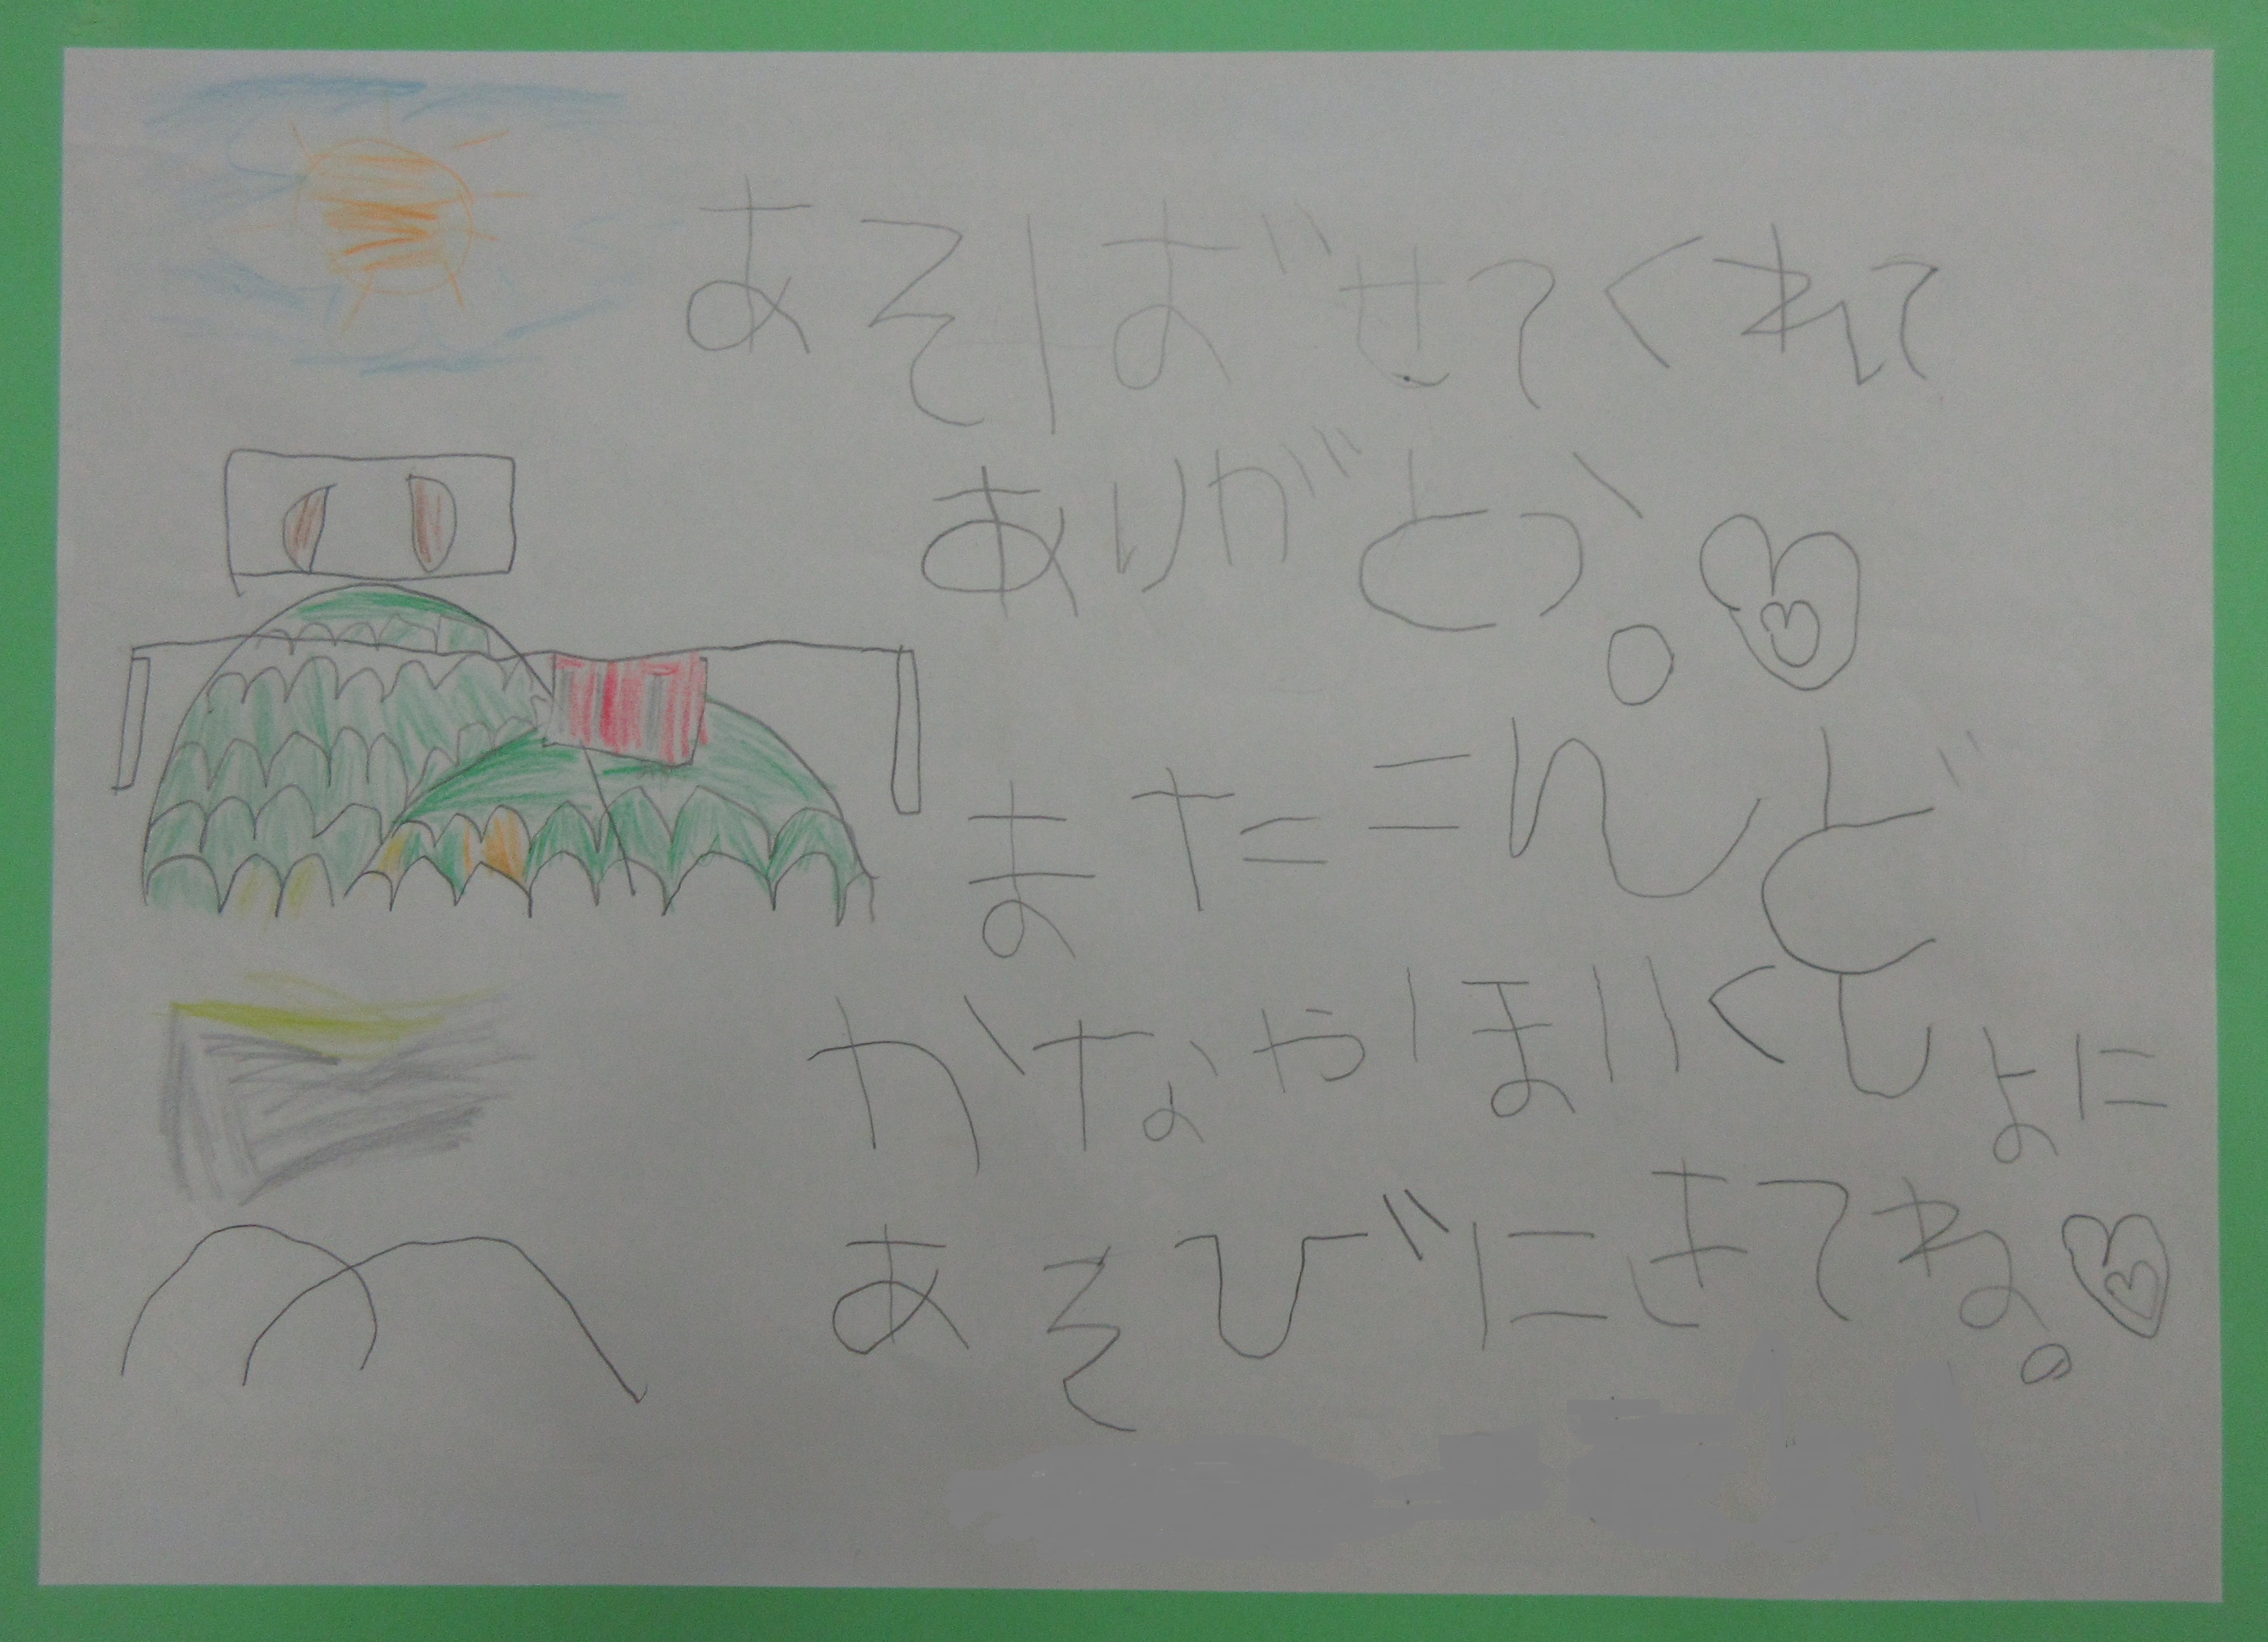 あそばせてくれて
ありがとう。
またこんど
かなやほいくしよに
あそびにきてね。